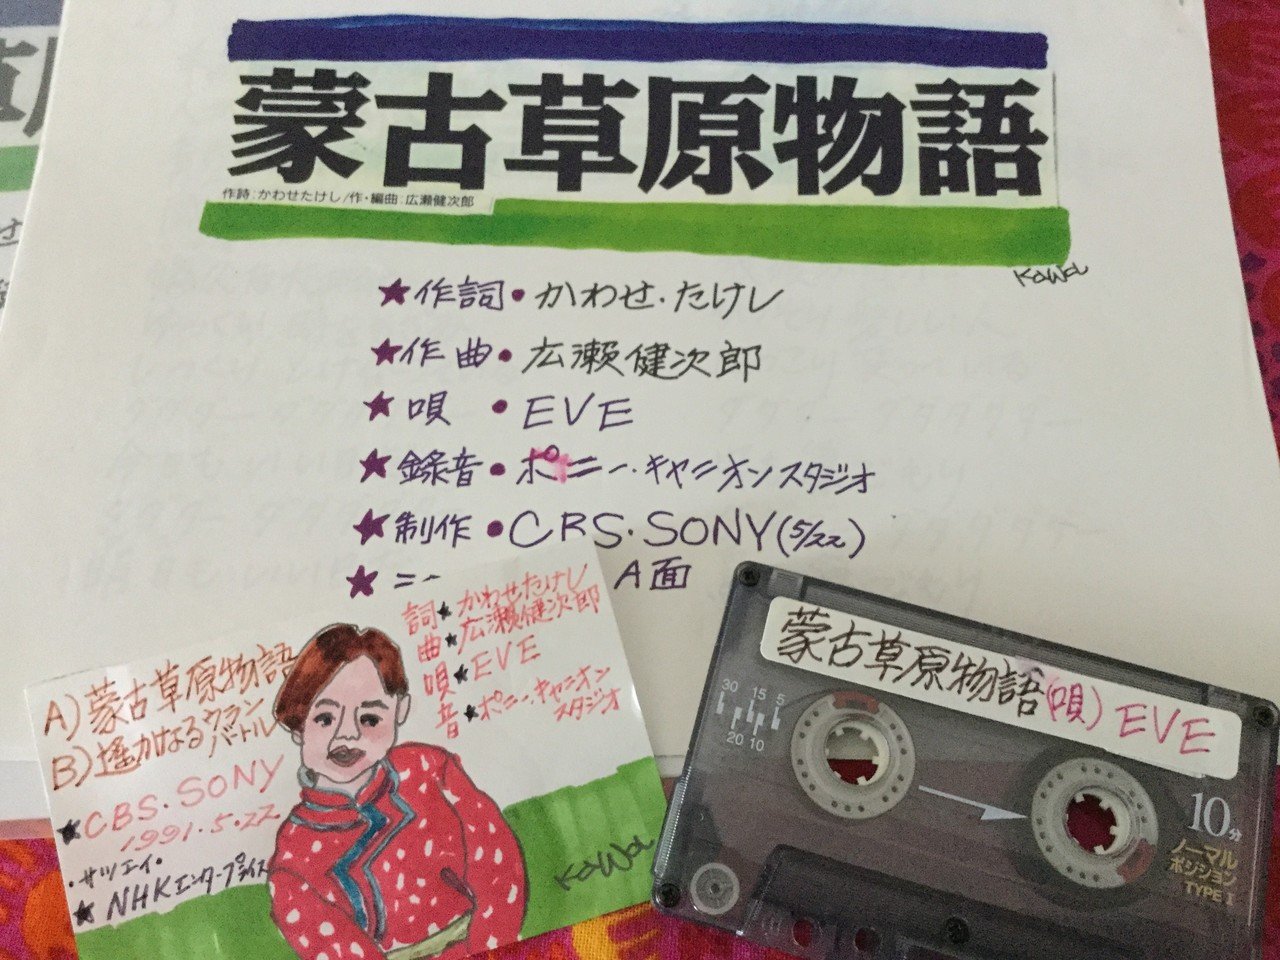 蒙古草原物語
作詩:かわせたけし/作・編曲:広瀬健次郎
KaWa
★作詞・かわせ・たけし
★作曲・広瀬健次郎
★唄・EVE
★録音・ポニー・キャニオンスタジオ
★制作・CRS・SONY(5/22)
★ A面
A)蒙古草原物語
B)遙かなるウランバートル
★CBS・SONY
1991・5・22
・サツエイ・
★NHKエンタープライズ
詞★かわせたけし
曲★広瀬健次郎
唄★EVE
音★ポニー・キャニオン
スタジオ
KaWa
蒙古草原物語(唄)EVE
30 15 5
20 10
10分
ノーマル
ポジション
TYPE I